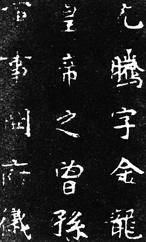 元騰字金龍
皇帝之曾孫
軍事開府儀